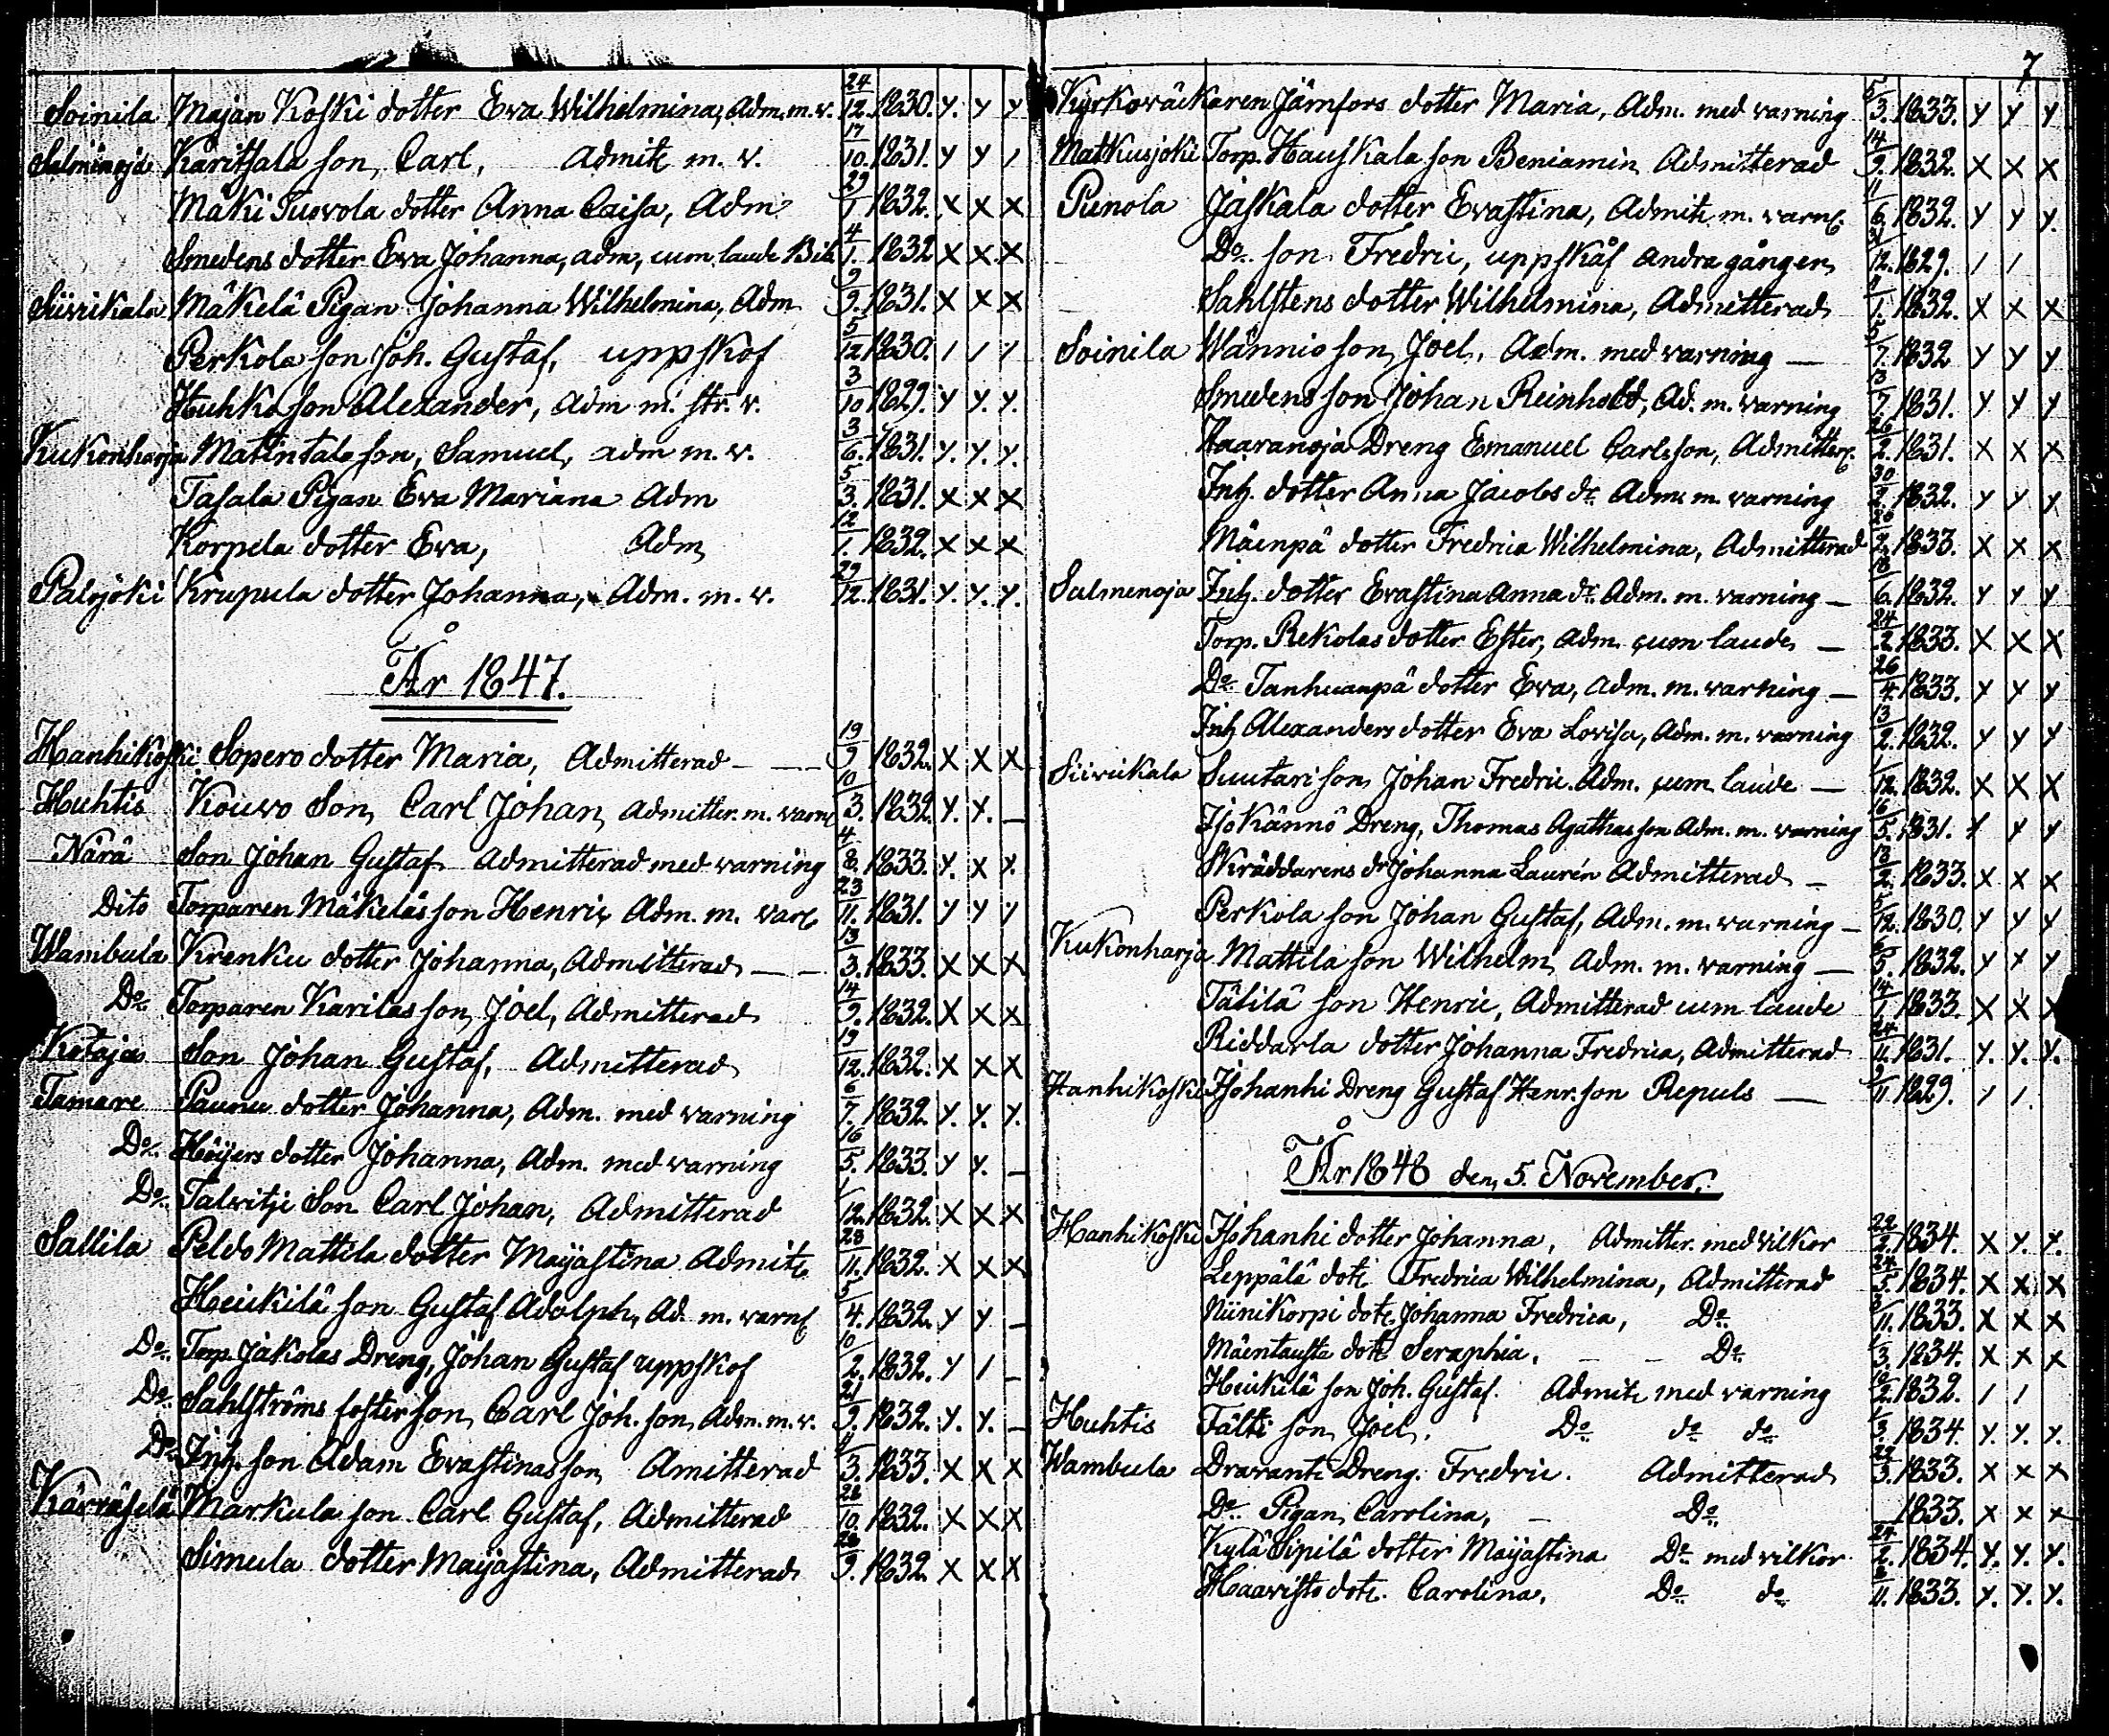 Soinila Majan Koski dotter Eva Wilhelmina, Adm. m. v. 24/12. 1830. y. y y
Salminoja Karitsala son, Carl, admitt m. v. 17/10. 1831. y y /
Mäki Tuovola dotter Anna Caisa, Adm 29/1 1832. x x x
Smedens dotter Eva Johanna, adm, cum laude Bib 4/1. 1832 x x x
Siivikala Mäkelä Pigan Johanna Wilhelmina, Adm 9/9. 1831. x x x
Perkola son Joh. Gustaf, uppskof 5/12 1830. / / /
Huhko son Alexander, adm m. str. v. 3/10 1829. y y. y.
Kukonharja Matintalo son, Samuel, adm m. v. 3/6. 1831. y. y. y.
Tasala Pigan Eva Mariana Adm 5/3. 1831. x x x
Korpela dotter Eva, Adm 12/1. 1832. x x x
Palojoki Krupula dotter Johanna, Adm. m. v. 29/12. 1831. y. y. y.
År 1847.
Hanhikoski Sopero dotter Maria, Admitterad 19/9 1832. x x x
Huhtis Kouvo Son, Carl Johan, admitter. m. varn 10/3. 1832. y. y. _
Närä Son Johan Gustaf Admitterad med varning 4/8. 1833. y. x y.
Dito Torparen Mäkeläs son Henric Adm. m. var 23/11. 1831. y y y
Wambula Krenku dotter Johanna, Admitterad 13/3. 1833. x x x
Do Torparen Karilas son, Joel, Admitterad 14/9. 1832. x x x
Kotaja Son Johan Gustaf, Admitterad 19/12. 1832. x x x
Tamare Paunu dotter Johanna, Adm. med varning 6/7. 1832. y. y. y.
Do Höijers dotter Johanna, Adm. med varning 16/5. 1833. y y. _
Do Talvitje Son Carl Johan, Admitterad 1/12. 1832. x x x
Sallila Peldo Mattila dotter Majastina Admitt 28/11. 1832. x x x
Heikilä son Gustaf Adolph, Ad. m. varn 5/4. 1832. y y _
Do Torp Jakolas Dreng, Johan Gustaf uppskof 10/2. 1832. y / _
Do Sahlströms foster son, Carl Joh. son, Adm. m. v. 21/9. 1832. y. y. _
Do Inh. son Adam Evastinas son Amitterad 4/3. 1833. x x x
Kärväselä Markula son Carl Gustaf, Admitterad 28/10. 1832. x x x
Simula dotter Majastina, Admitterad 28/9. 1832 x x x
7
Kyrkoväckaren Jämfors dotter Maria, Adm. med varning 5/3. 1833. y y y
Matkusjoki Torp. Hauskala son Beniamin Admitterad 14/9. 1832. x x x
Punola Jaskala dotter Evastina, Admitt m. varn 11/6. 1832. y y y.
Do son Fredric, uppskåf andra gången 31/12. 1829. / /
Sahlstens dotter Wilhelmina, Admitterad 1/1. 1832. x x x
Soinila Wännio son, Joel, Adm. med varning — 5/7. 1832 y y y
Smedens son Johan Reinhold, Ad. m. varning 13/7. 1831. y y y
Haaranoja Dreng Emanuel Carlsson, Admitter 26/2. 1831. x x x
Inh. dotter Anna Jacobs dr Adm m. varning 30/2. 1832. y y y
Mäenpä dotter Fredrica Wilhelmina, Admitterad 28/2. 1833. x x x
Salmenoja Inh. dotter Evastina Anna dr Adm. m. varning — 18/6. 1832. y y y
Torp. Rekolas dotter Ester, adm. cum laude — 24/2. 1833. x x x
Do Tanhuanpä dotter Eva, adm. m. varning — 26/4. 1833. y y y
Inh Alexanders dotter Eva Lovisa, Adm. m. varning 13/2. 1832. y y y
Siivikala Suutari son Johan Fredric. Adm. cum laude — 1/12. 1832. x x x
Isokännö Dreng, Thomas Agathas son Adm. m. varning 16/5. 1831. y y y
Skräddarens dr Johanna Laurén Admitterad — 18/2. 1833. x x x
Perkola son Johan Gustaf, Adm. m. varning — 5/12. 1830. y y y
Kukonharja Mattila son Wilhelm, Adm. m. varning — 6/5. 1832. y y y
Tätilä son Henric, Admitterad cum laude 14/1. 1833. x x x
Riddarla dotter Johanna Fredrica, Admitterad 24/11. 1831. y. y. y.
Hanhikoski Isohanhi Dreng Gustaf Henr. son Repuls — 9/11 1829. / /.
År 1848 den, 5. November.
Hanhikoski Isohanhi dotter Johanna, Admitter. med vilkor 22/2. 1834. x y. y.
Leppälä dott Fredrica Wilhelmina, Admitterad 24/5. 1834. x x x
Niinikorpi dott. Johanna Fredrica, Do 3/11. 1833. x x x
Mäentausta dott Seraphia. — — Do 1/3. 1834. x x x
Heikilä son Joh. Gustaf. Admitt med varning 10/2. 1832. / /
Huhtis Tälti son, Joel. Do do do 1/3. 1834. y. y. y.
Wambula Dravanti Dreng. Fredric. Admitterad 22/3. 1833. x x x
Do Pigan, Carolina, — Do 1833. x x x
Kylä Sipilä dotter Maijastina Do med vilkor 24/2. 1834. y. y. y.
Haavisto dott. Carolina. Do do 8/11. 1833. y. y. y.